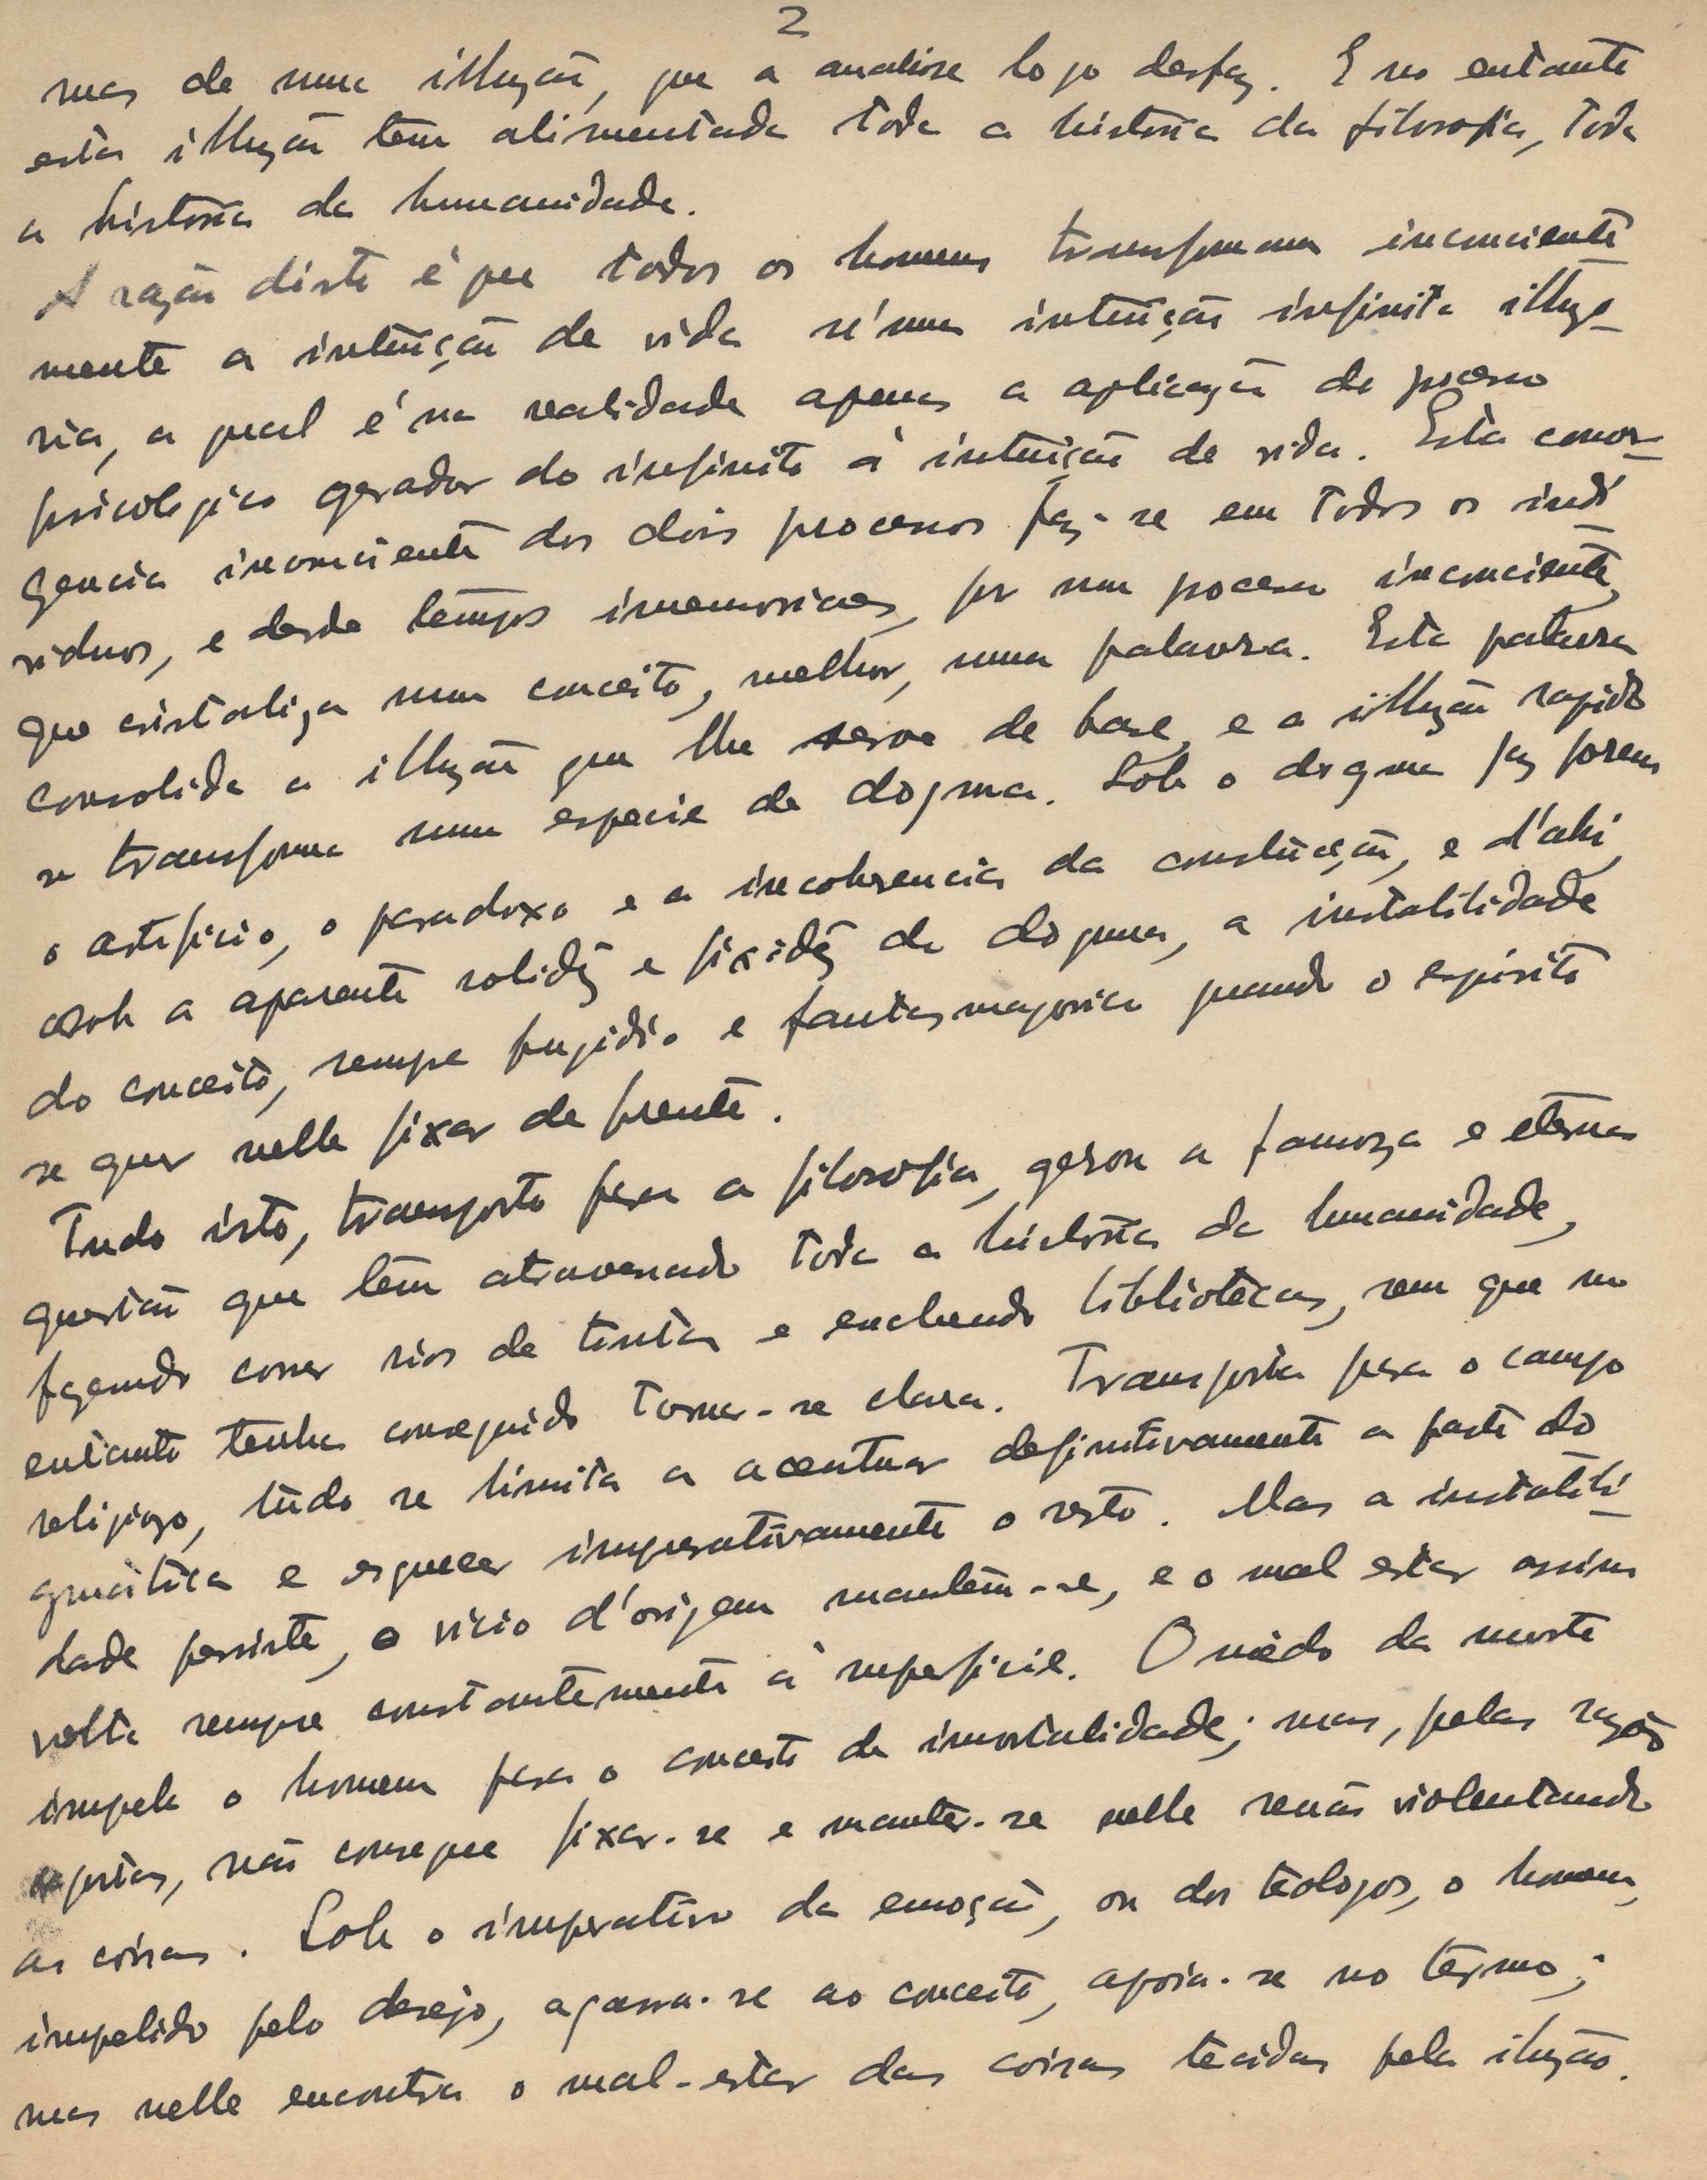 2
mas de uma illuzão, que a analise logo desfaz. E no entanto
esta illuzão tem alimentado toda a historia da filosofia, toda
a historia da humanidade.
A razão disto é que todos os homens transformam inconciente_
mente a intuição de vida n'uma intuição infinita illuzo_
ria, a qual é na realidade apenas a aplicação do processo
psicologico gerador do infinito á intuição de vida. Esta conver_
gencia inconsciente dos dois processos faz-se em todos os indi_
viduos, e desde tempos imemoriaes, por um processo inconciente,
que cristaliza num conceito, melhor, numa palavra. Esta palavra
consolida a illuzão que lhe serve de base, e a illuzão rapido
se transforma numa especie de dogma. Sob o dogma jaz porem
o artificio, o paradoxo e a incoherencia da construção, e d'ahi,
sob a aparente solidez e fixidez do dogma, a instabilidade
do conceito, sempre fugidio e fantasmagorico quando o espirito
se quer nelle fixar de frente.
Tudo isto, transposto para a filosofia, gerou a famoza e eterna
questão que tem atravessado toda a historia da humanidade,
fazendo correr rios de tinta e enchendo bibliotecas, sem que no
entanto tenha conseguido tornar-se clara. Transposta para o campo
religiozo, tudo se limita a acentuar definitivamente a parte do_
gmática e esquecer imperativamente o resto. Mas a instabili_
dade persiste, o vicio d'origem mantém-se, e o mal estar assim
volta sempre constantemente á superficie. O mêdo da morte
impele o homem para o conceito de imortalidade; mas, pelas razões
expostas, não consegue fixar-se e manter-se nelle senão violentando
as coisas. Sob o imperativo da emoção, ou dos teologos, o homem,
impelido pelo desejo, agarra-se ao conceito, apoia-se no termo;
mas nelle encontra o mal-estar das coisas tecidas pela iluzão.